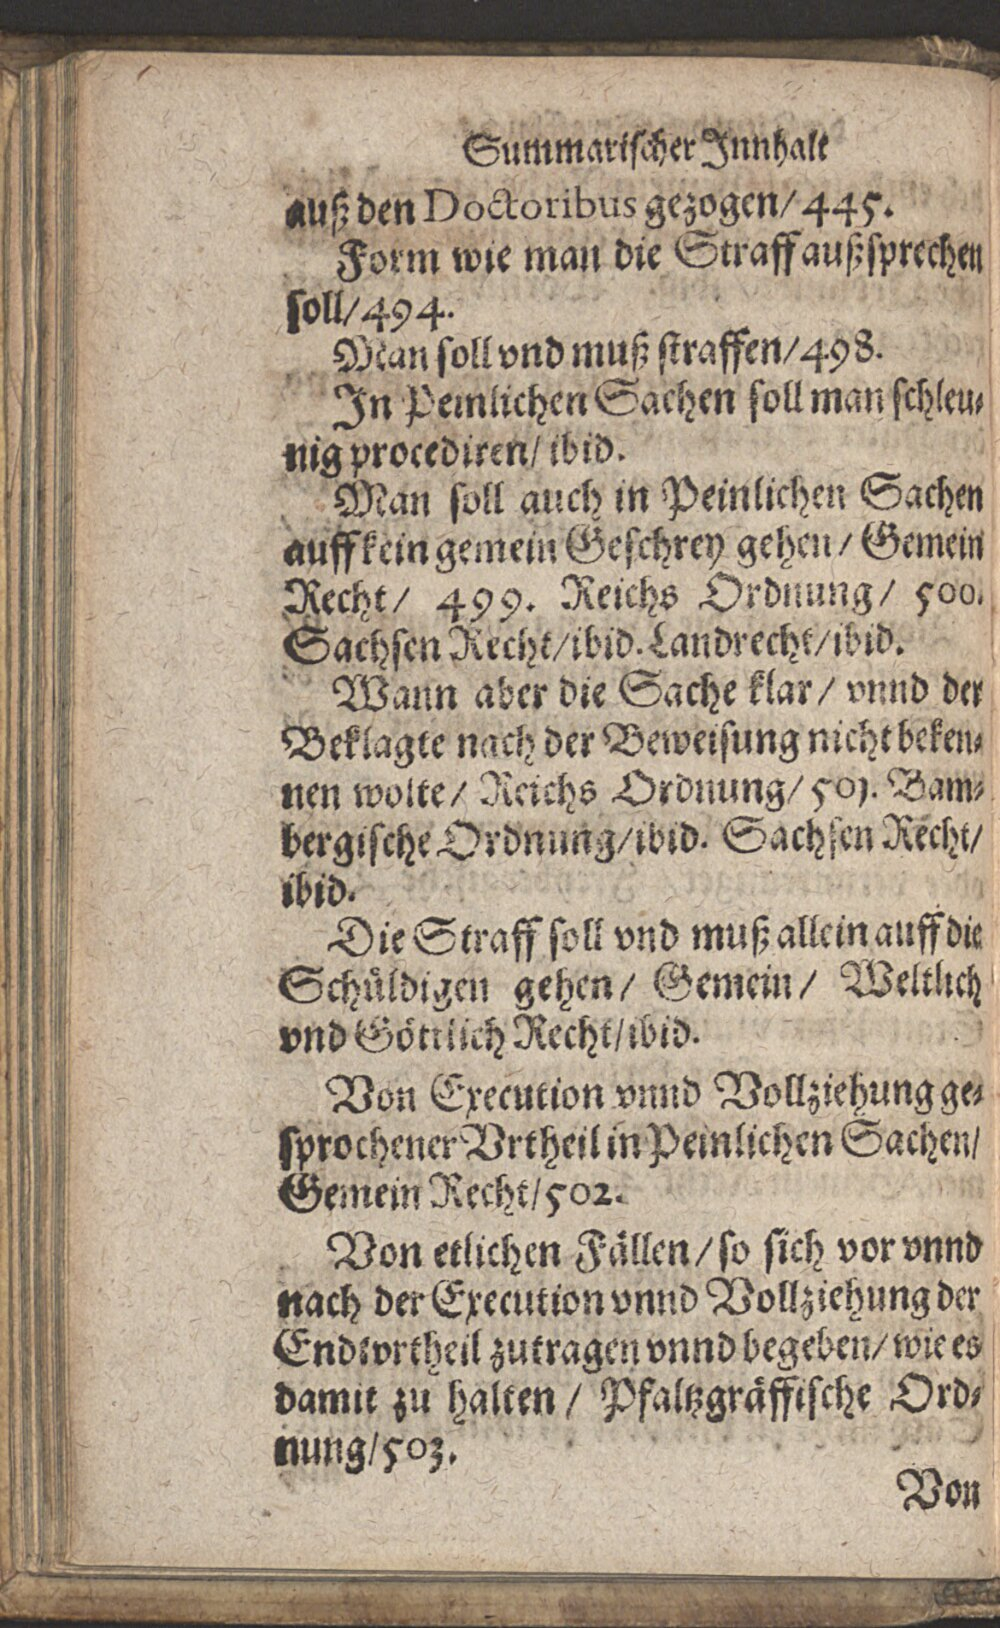 Summarischer Innhalt
auß den Doctoribus gezogen/ 445.
Form wie man die Straff außsprechen
soll/ 494.
Man soll vnd muß straffen/ 498.
In Peinlichen Sachen soll man schleu-
nig procediren/ ibid.
Man soll auch in Peinlichen Sachen
auff kein gemein Geschrey gehen/ Gemein
Recht/ 499. Reichs Ordnung/ 500.
Sachsen Recht/ ibid. Landrecht/ ibid.
Wann aber die Sache klar/ vnnd der
Beklagte nach der Beweisung nicht beken-
nen wolte/ Reichs Ordnung/ 501. Bam-
bergische Ordnung/ ibid. Sachsen Recht/
ibid.
Die Straff soll vnd muß allein auff die
Schüldigen gehen/ Gemein/ Weltlich
vnd Göttlich Recht/ ibid.
Von Execution vnnd Vollziehung ge-
sprochener Vrtheil in Peinlichen Sachen/
Gemein Recht/ 502.
Von etlichen Fällen/ so sich vor vnnd
nach der Execution vnnd Vollziehung der
Endtvrtheil zutragen vnnd begeben/ wie es
damit zu halten/ Pfaltzgräffische Ord-
nung/ 503.
Von